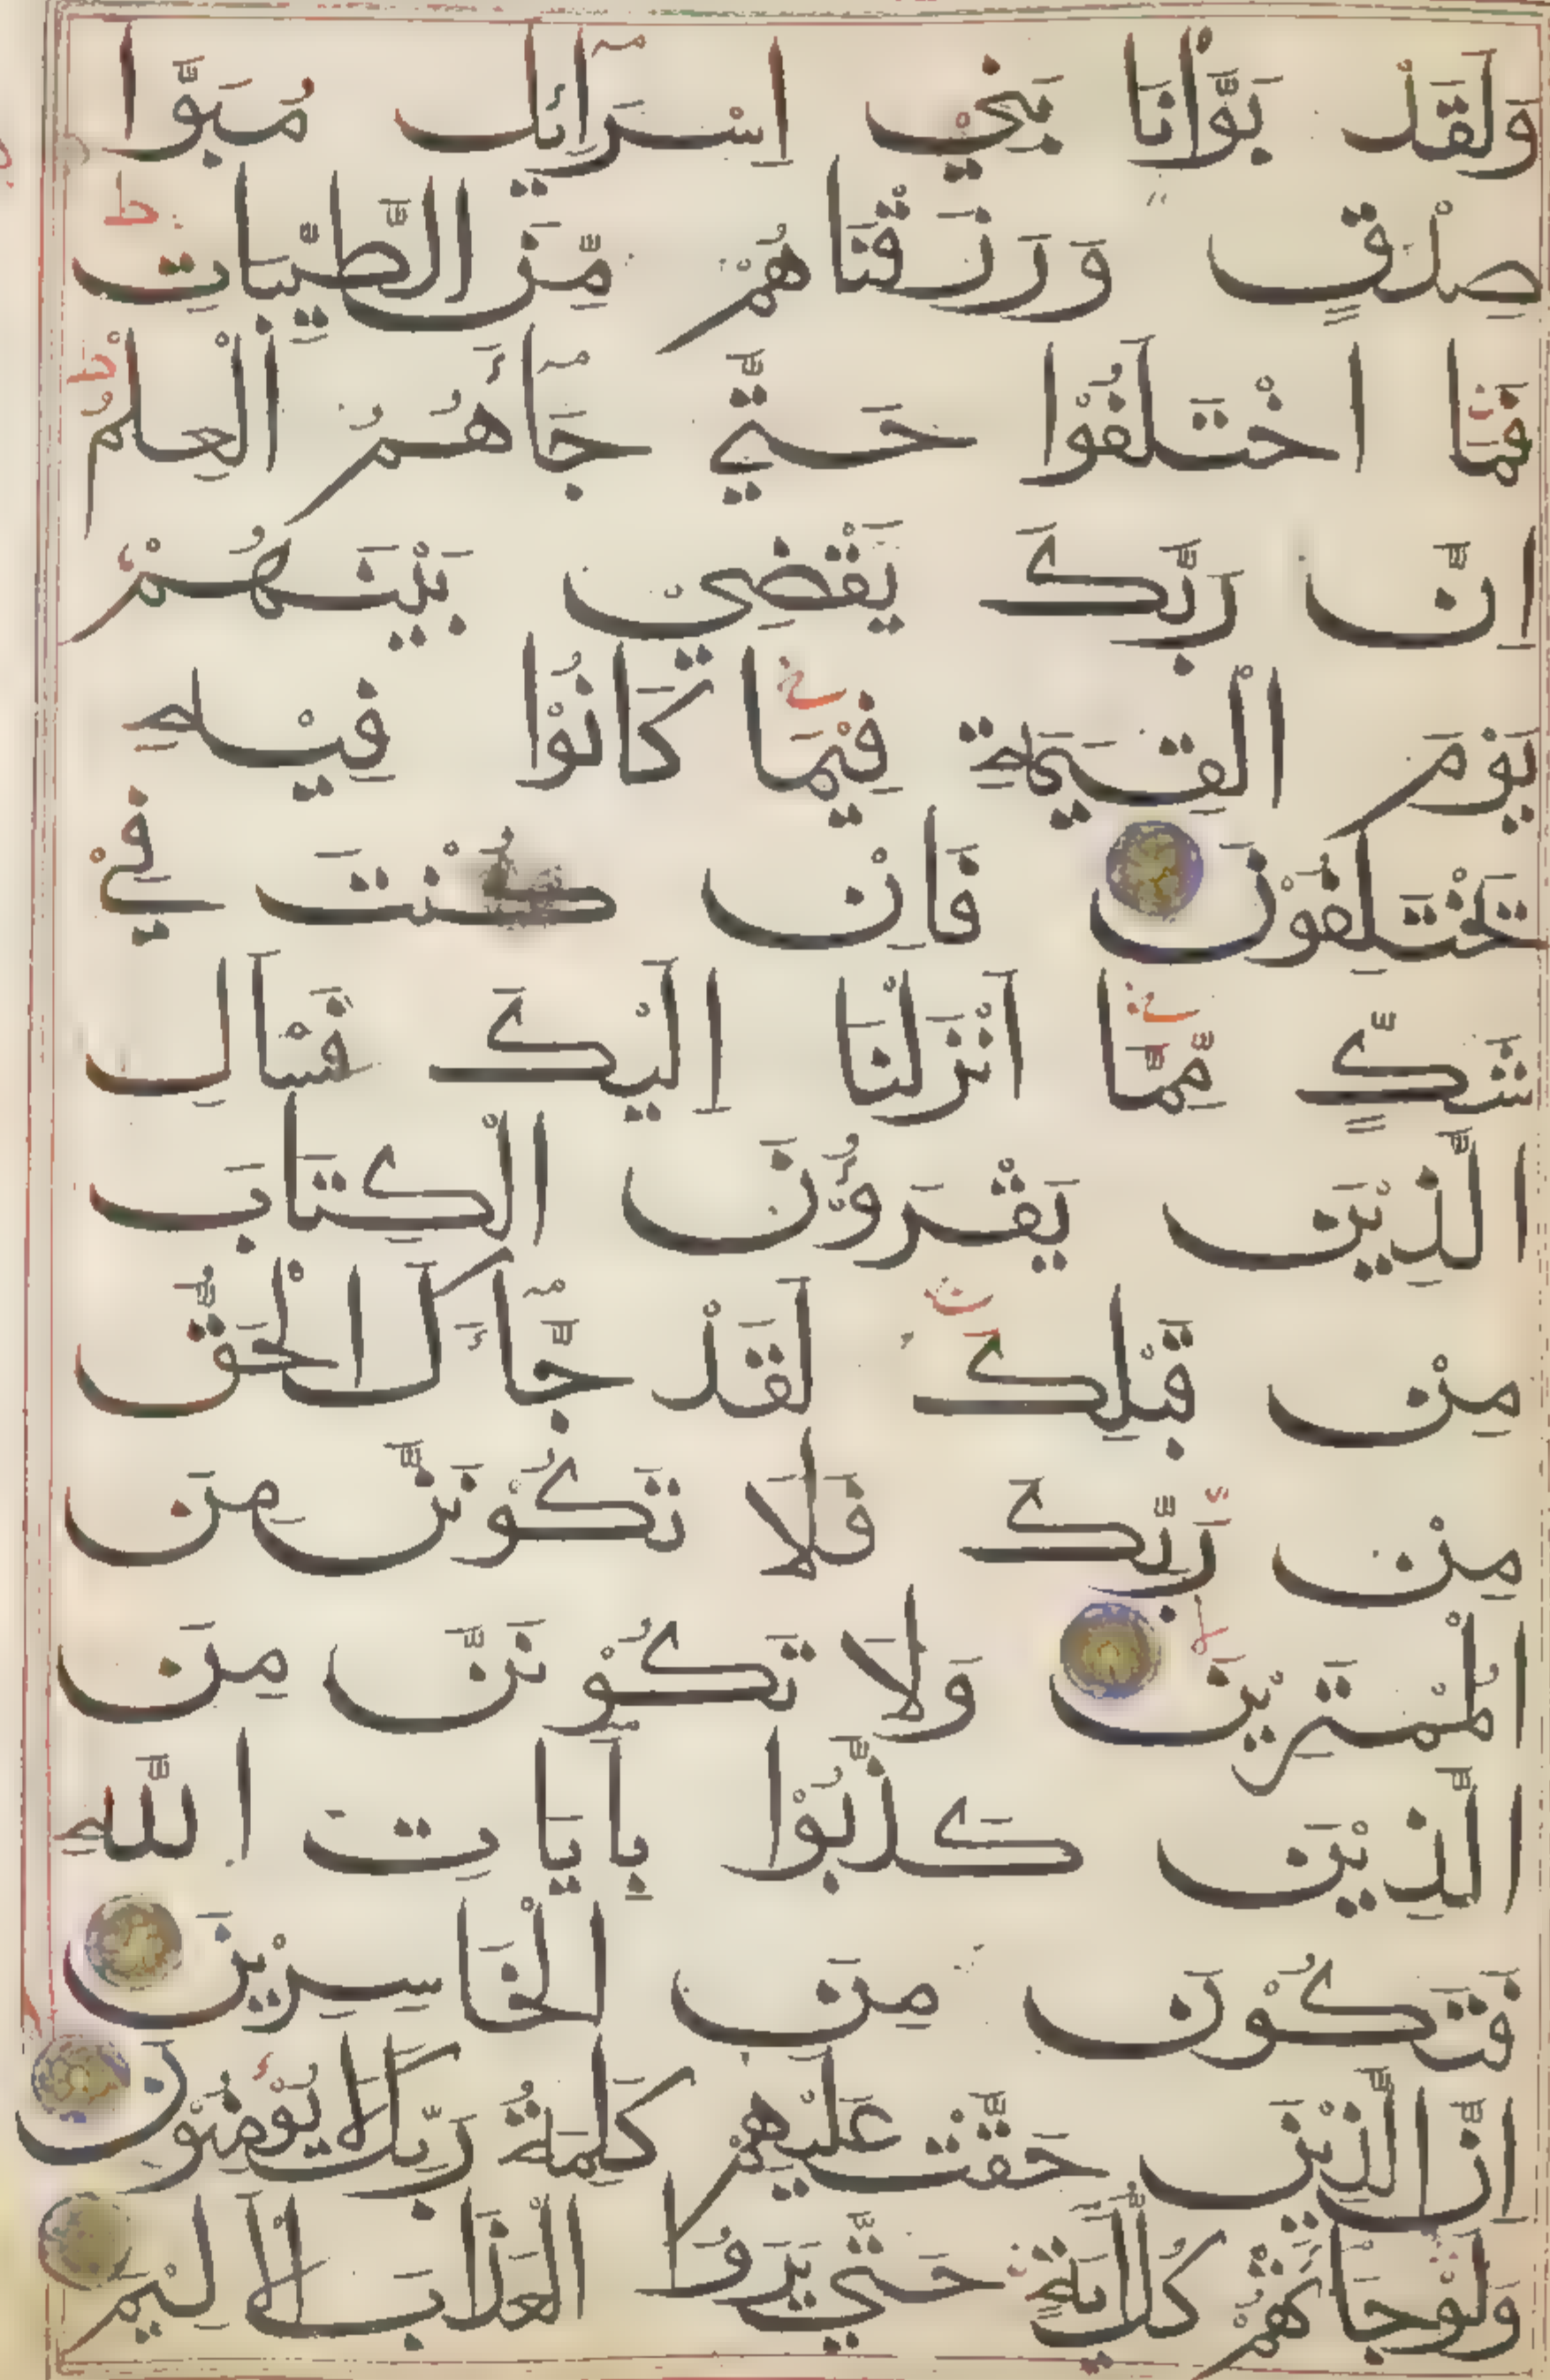 وَلَقَدْ بَوَّاْنَا بَنِيْ اِسْرَآئِيل مُبَوَّا
صِدْقٍ وَرَزَقْنَاهُمْ مِّنَ الطَّيِّبَاتِ
فَمَا اخْتَلَفُوْا حَتّٰي جَآءَهُمُ الْعِلْمُ
اِنَّ رَبَّكَ يَقْضِيْ بَيْنَهُمْ
يَوْمَ الْقِيَمَةِ فِيْمَا كَانُوْا فِيْهِ
يَخْتَلِفُوْنَ فَاِنْ كُنْتَ فِيْ
شَكٍّ مِّمَّا اَنْزَلْنَا اِلَيْكَ فَسْاَلِ
الَّذِيْنَ يَقْرَوُنَ الْكِتَابَ
مِنْ قَبْلِكَ لَقَدْ جَّآءَكَ الْحَقُّ
مِنْ رَّبِّكَ فَلَا تَكُوْنَنَّ مِنَ
الْمُمْتَرِيْنَ وَلَا تَكُوْنَنَّ مِنَ
الَّذِيْنَ كَذَّبُوْا بِآيَاتِ اللَّهِ
فَتَكُوْنَ مِنَ الْخَاسِرِيْنَ
اِنَّ الَّذِيْنَ حَقَّتْ عَلَيْهِمْ كَلِمَةُ رَبِّكَ لَا يُؤْمِنُوْنَ
وَلَوْ جَآءَتْهُمْ كُلُّ اٰيَةٍ حَتّٰي يَرَوُا الْعَذَابَ الْاَلِيْمَ